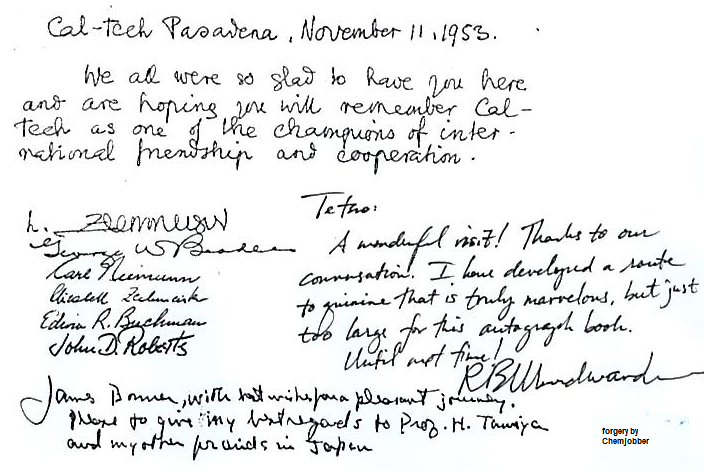 Cal-tech Pasadena, November 11, 1953.
We all were so glad to have you here
and are hoping you will remember Cal-
tech as one of the champions of inter-
national friendship and cooperation.
L. Zechmeister
George W. Beadle
Carl Niemann
Elizabeth Zechmeister
Edwin R. Buchman
John D. Roberts
Tetsuo:
A wonderful visit! Thanks to our
conversation. I have developed a route
to quinine that is truly marvelous, but just
too large for this autograph book.
Until next time!
R B Woodward
James Bonner, with best wishes for a pleasant journey.
Please to give my best regards to Prof. H. Tamiya
and my other friends in Japan
forgery by
Chemjobber